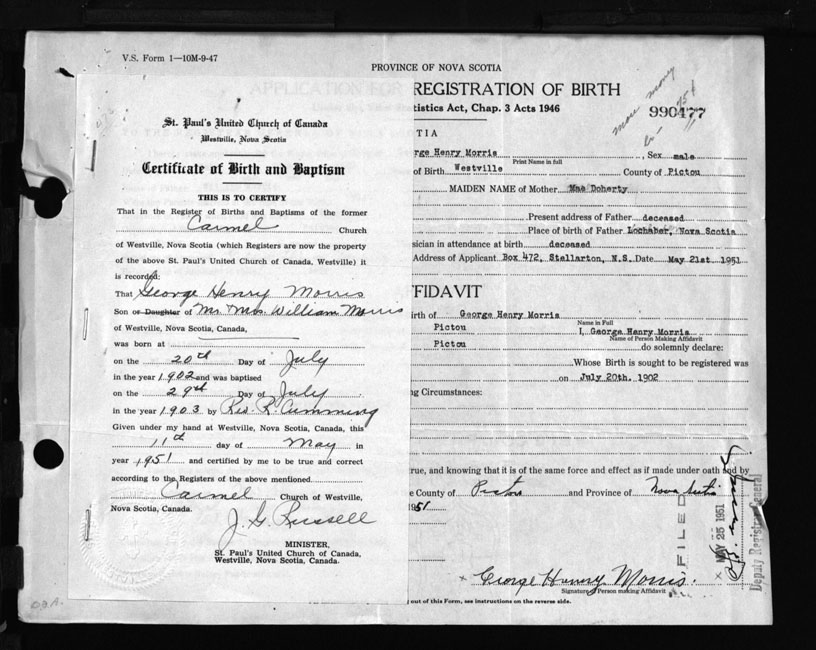 V.S. Form 1—10M-9-47
PROVINCE OF NOVA SCOTIA
APPLICATION FOR REGISTRATION OF BIRTH
tistics Act, Chap. 3 Acts 1946
more money
990477
St. Paul's United Church of Canada
Westville, Nova Scotia
Certificate of Birth and Baptism
THIS IS TO CERTIFY
That in the Register of Births and Baptisms of the former
Carmel Church
of Westville, Nova Scotia (which Registers are now the property
of the above St. Paul's United Church of Canada, Westville) it
is recorded:
That George Henry Morris
Son or Daughter of Mr. Mrs. William Morris
of Westville, Nova Scotia, Canada,
was born at
on the 20th Day of July
in the year 1902 and was baptised
on the 29th Day of July
in the year 1903 by Rev. R. Cumming
Given under my hand at Westville, Nova Scotia, this
11th day of May in
year 1951 and certified by me to be true and correct
according to the Registers of the above mentioned
Carmel Church of Westville,
Nova Scotia, Canada.
J. G. Russell
MINISTER,
St. Paul's United Church of Canada,
Westville, Nova Scotia, Canada.
TIA
rge Henry Morris, Sex male
Print Name in full
of Birth Westville County of Pictou
MAIDEN NAME of Mother Mae Doherty
Present address of Father deceased
Place of birth of Father Lochaber, Nova Scotia
sician in attendance at birth deceased
Address of Applicant Box 472, Stellarton, N.S. Date May 21st. 1951
FIDAVIT
irth of George Henry Morris
Name in Full
Pictou I, George Henry Morris
Name of Person Making Affidavit
Pictou do solemnly declare:
Whose Birth is sought to be registered was
on July 20th. 1902
ng Circumstances:
rue, and knowing that it is of the same force and effect as if made under oath and by
e County of Pictou and Province of Nova Scotia
1951
FILED
MAY 25 1951
Deputy Registrar General
x George Henry Morris.
Signature of Person making Affidavit
out of this Form, see instructions on the reverse side.